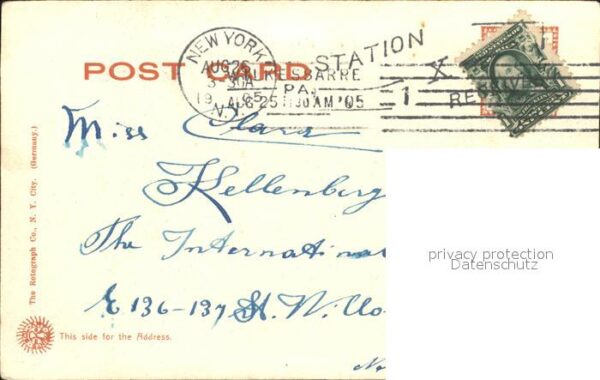 NEW YORK
STATION
AUG 26
WILKESBARRE
POST CARD
PA.
X
RECEIVED
1905
AUG 25 11 30 AM '05
1
N.Y.
Miss Clara
Kellenberg
The Internation
E 136-137 St. Willo
privacy protection
Datenschutz
The Rotograph Co., N. Y. City. (Germany.)
This side for the Address.